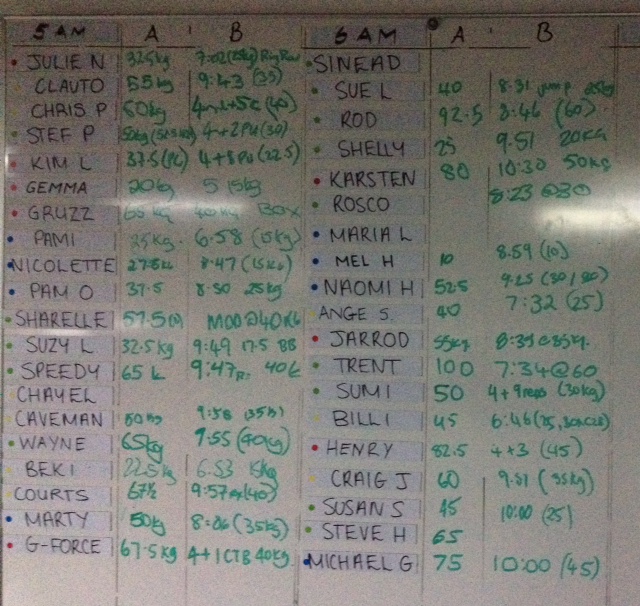 5 AM A B
JULIE N 32.5kg
CLAUTO 55kg 9:43 (35)
CHRIS P 50kg (40)
STEF P 4+2PU(30)
KIM L 37.5 (PC) 4+8PU(22.5)
GEMMA 20kg 5 15kg
GRUZZ BOX
PAMI 25kg. 6:58 (15kg)
NICOLETTE 8:47 (15kg)
PAM O 37.5 8:50 25kg
SHARELLE 57.5 MOD@40KG
SUZY L 32.5kg 9:49 17.5 BB
SPEEDY 65 k 9:47
CHAYEL
CAVEMAN 9:58 (35kg)
WAYNE 65kg 7:55 (40kg)
BEKI 22.5kg 6:53 15kg
COURTS 67½ 9:57 (40)
MARTY 50kg 8:06 (35kg)
G-FORCE 67.5kg 4+1CTB 40kg.
6 AM A B
SINEAD
SUE L 40 8:31
ROD 92.5 8:46 (60)
SHELLY 25 9:51 20KG
KARSTEN 80 10:30 50kg
ROSCO 8:23 @30
MARIA L
MEL H 10 8:59 (10)
NAOMI H 52.5 9:25
ANGE S. 40 7:32 (25)
JARROD 55kg 8:39@35kg.
TRENT 100 7:34@60
SUMI 50 4+9reps (30kg)
BILLI 45 6:46
HENRY 82.5 4+3 (45)
CRAIG J 60 9:51 (35kg)
SUSAN S 45 10:00 (25)
STEVE H 65
MICHAEL G 75 10:00 (45)